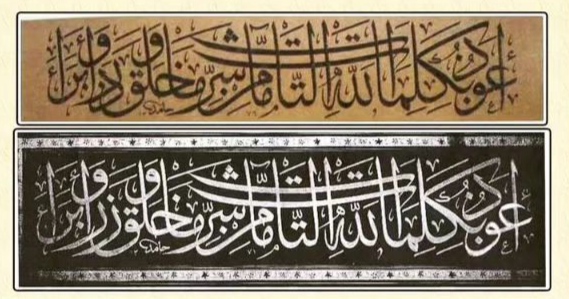 أعوذ بكلمات الله التامات من شر ما خلق وذرأ وبرأ
حامد
أعوذ بكلمات الله التامات من شر ما خلق وذرأ وبرأ
حامد